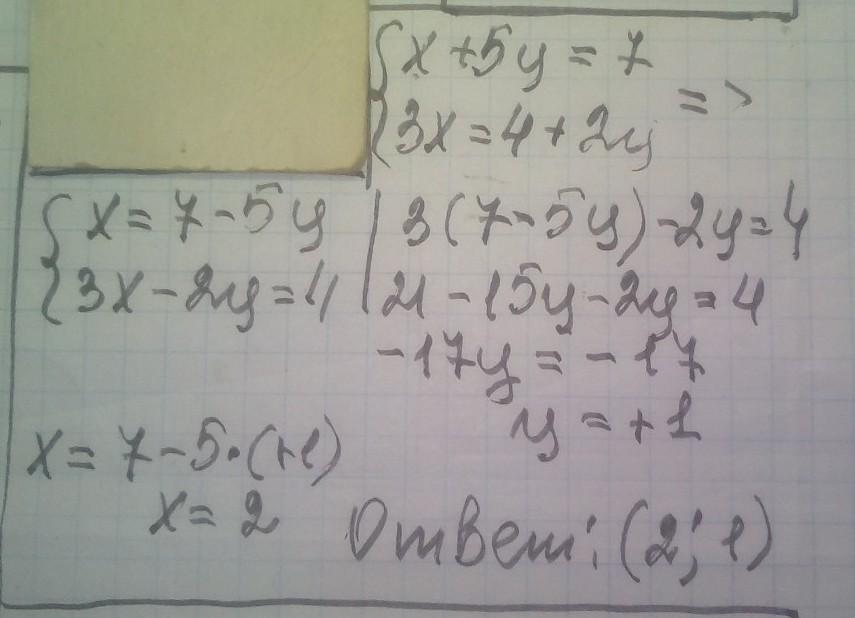 {x+5y=7
{3x=4+2y =>
{x=7-5y | 3(7-5y)-2y=4
{3x-2y=4 | 21-15y-2y=4
-17y=-17
y=+1
x=7-5·(+1)
x=2
Ответ: (2; 1)